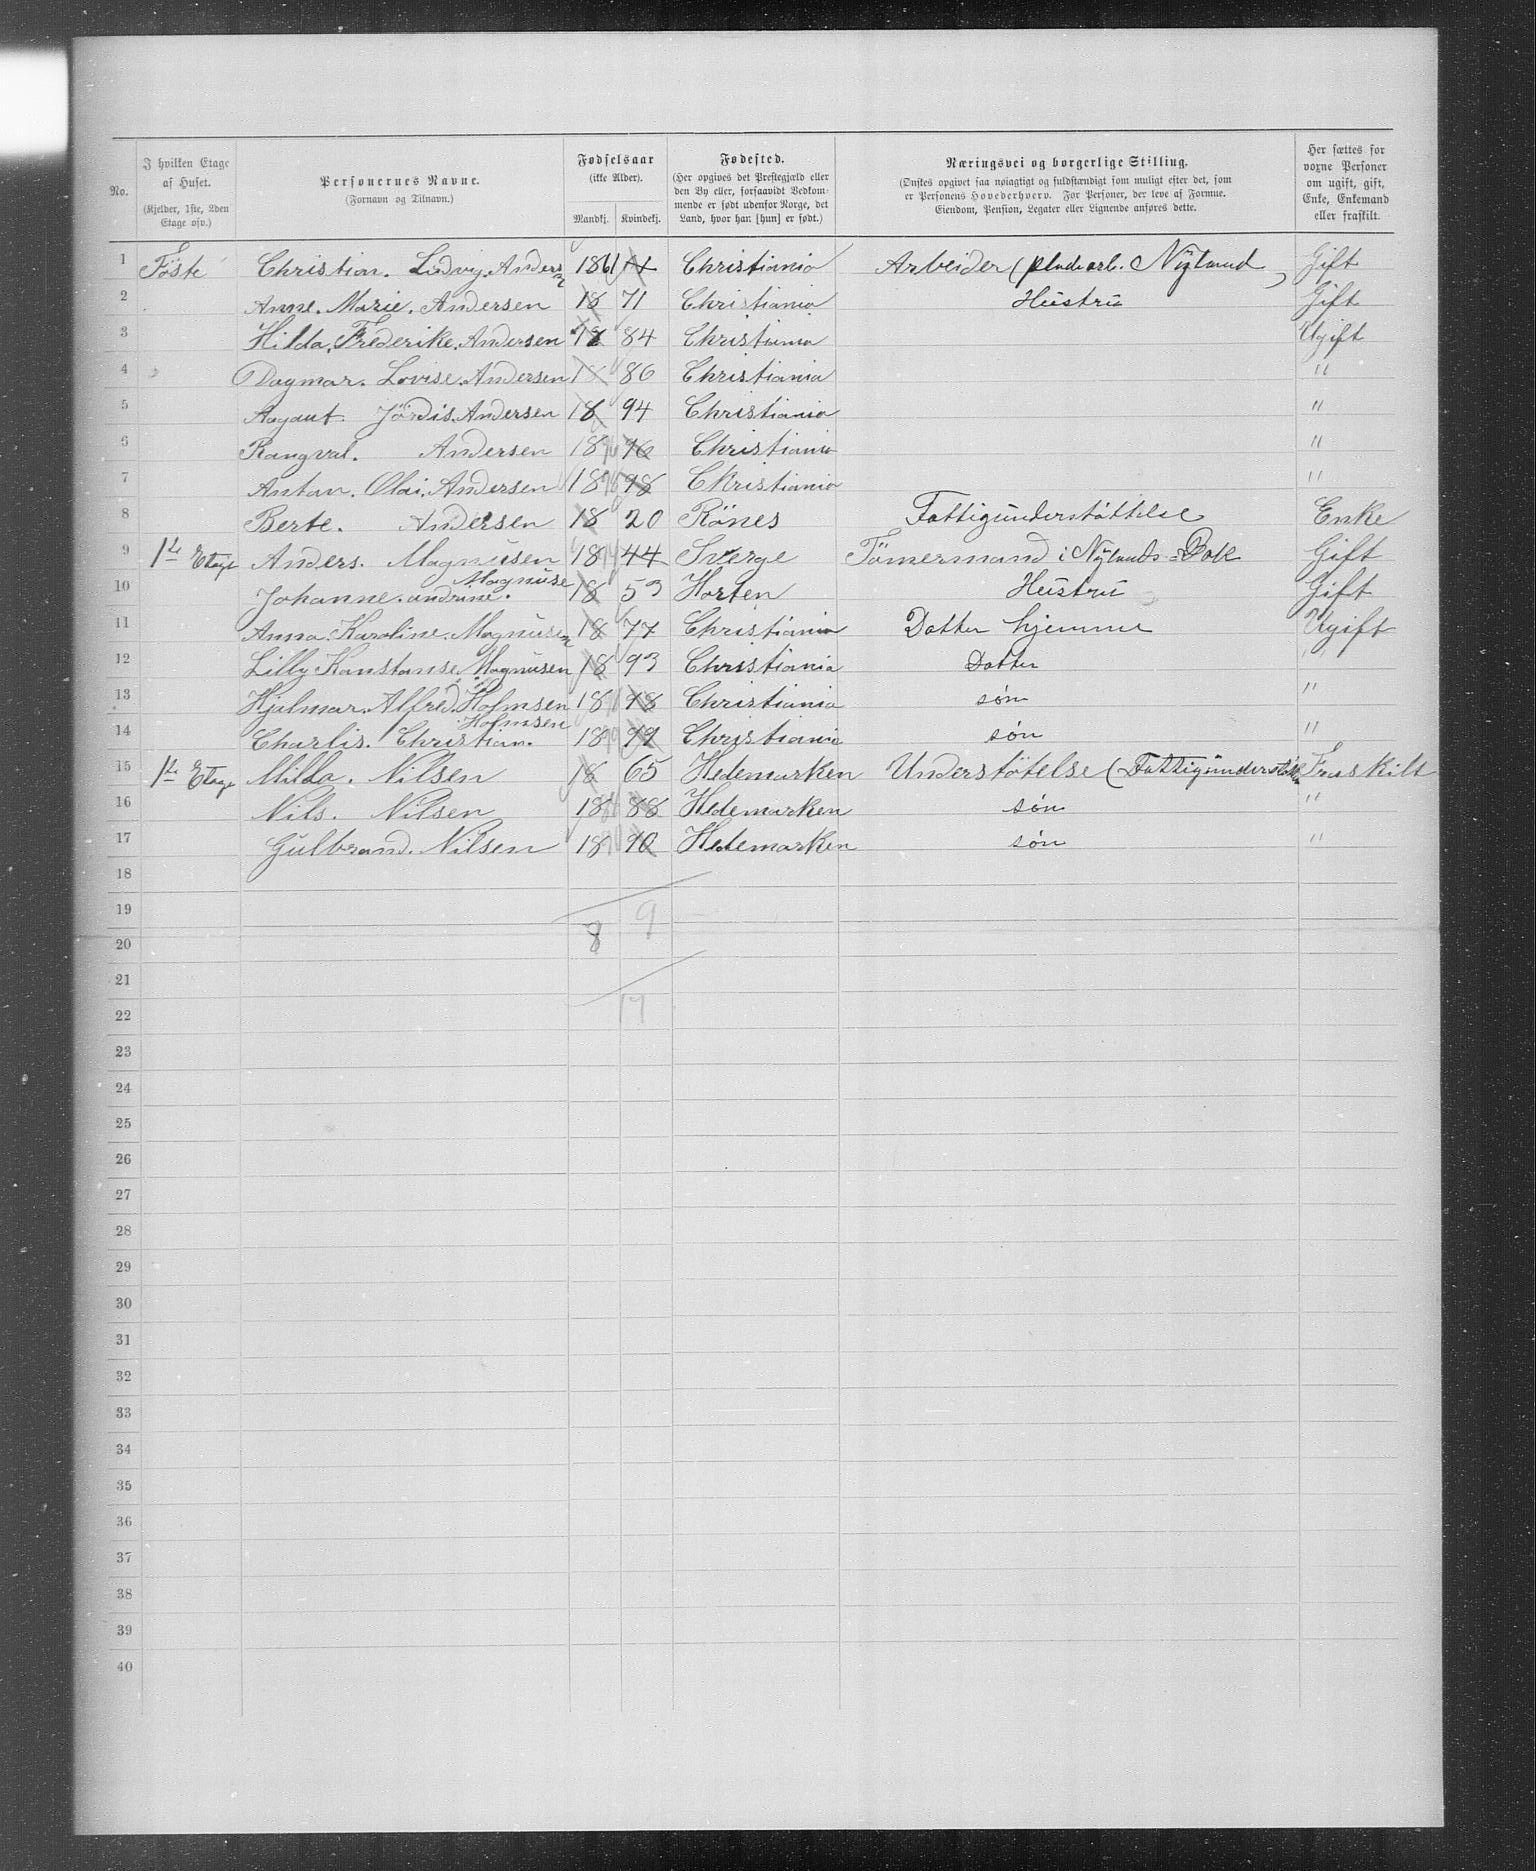 No.
I hvilken Etage af Huset. (Kjelder, 1ste, 2den Etage osv.)
Personernes Navne. (Fornavn og Tilnavn.)
Fødselsaar (ikke Alder). Mandkj. Kvindekj.
Fødested. (Her opgives det Præstegjæld eller den By eller, forsaavidt Vedkommende er født udenfor Norge, det Land, hvor han [hun] er født.)
Næringsvei og borgerlige Stilling. (Ønskes opgivet saa nøiagtigt og fuldstændigt som muligt efter det, som er Personens Hovederhverv. For Personer, der leve af Formue. Eiendom, Pension, Legater eller Lignende anføres dette.
Her sættes for voxne Personer om ugift, gift, Enke, Enkemand eller fraskilt.
1 Föste Christian. Ludvig. Andersen 1861 Christiania Arbeider ( pladearb. Nyland ) Gift
2 Anne. Marie. Andersen 18 71 Christiania Hustru Gift
3 Hilda. Frederike. Andersen 18 84 Christiania Ugift
4 Dagmar. Lovise. Andersen 1 86 Christiania "
5 Aagaut. Jördis. Andersen 18 94 Christiania "
6 Rangval. Andersen 18 96 Christiania "
7 Antan. Olai. Andersen 18 98 Christiania "
8 Berte. Andersen 18 20 Rönes Fattigunderstöttelse Enke
9 1ste Etage Anders. Magnusen 18 44 Sverge Tömermand i Nylands Gift
10 Johanne. andrine. Magnuse 18 53 Horten Hustru Gift
11 Anna. Karoline. Magnusen 18 77 Christiania Datter hjemme Ugift
12 Lilly Konstanse Magnusen 18 93 Christiania Datter "
13 Hjalmar. Alfred. Holmsen 18 98 Christiania søn "
14 Charlis. Christian. Holmsen 18 99 Christiania søn "
15 1ste Etage Milda. Nilsen 18 65 Hedemarken Understötelse (Fattigunderstötelse Fraskilt
16 Nils. Nilsen 18 88 Hedemarken søn "
17 Gulbrand. Nilsen 18 90 Hedemarken søn "
18
19 9
20 8
21
22 17
23
24
25
26
27
28
29
30
31
32
33
34
35
36
37
38
39
40